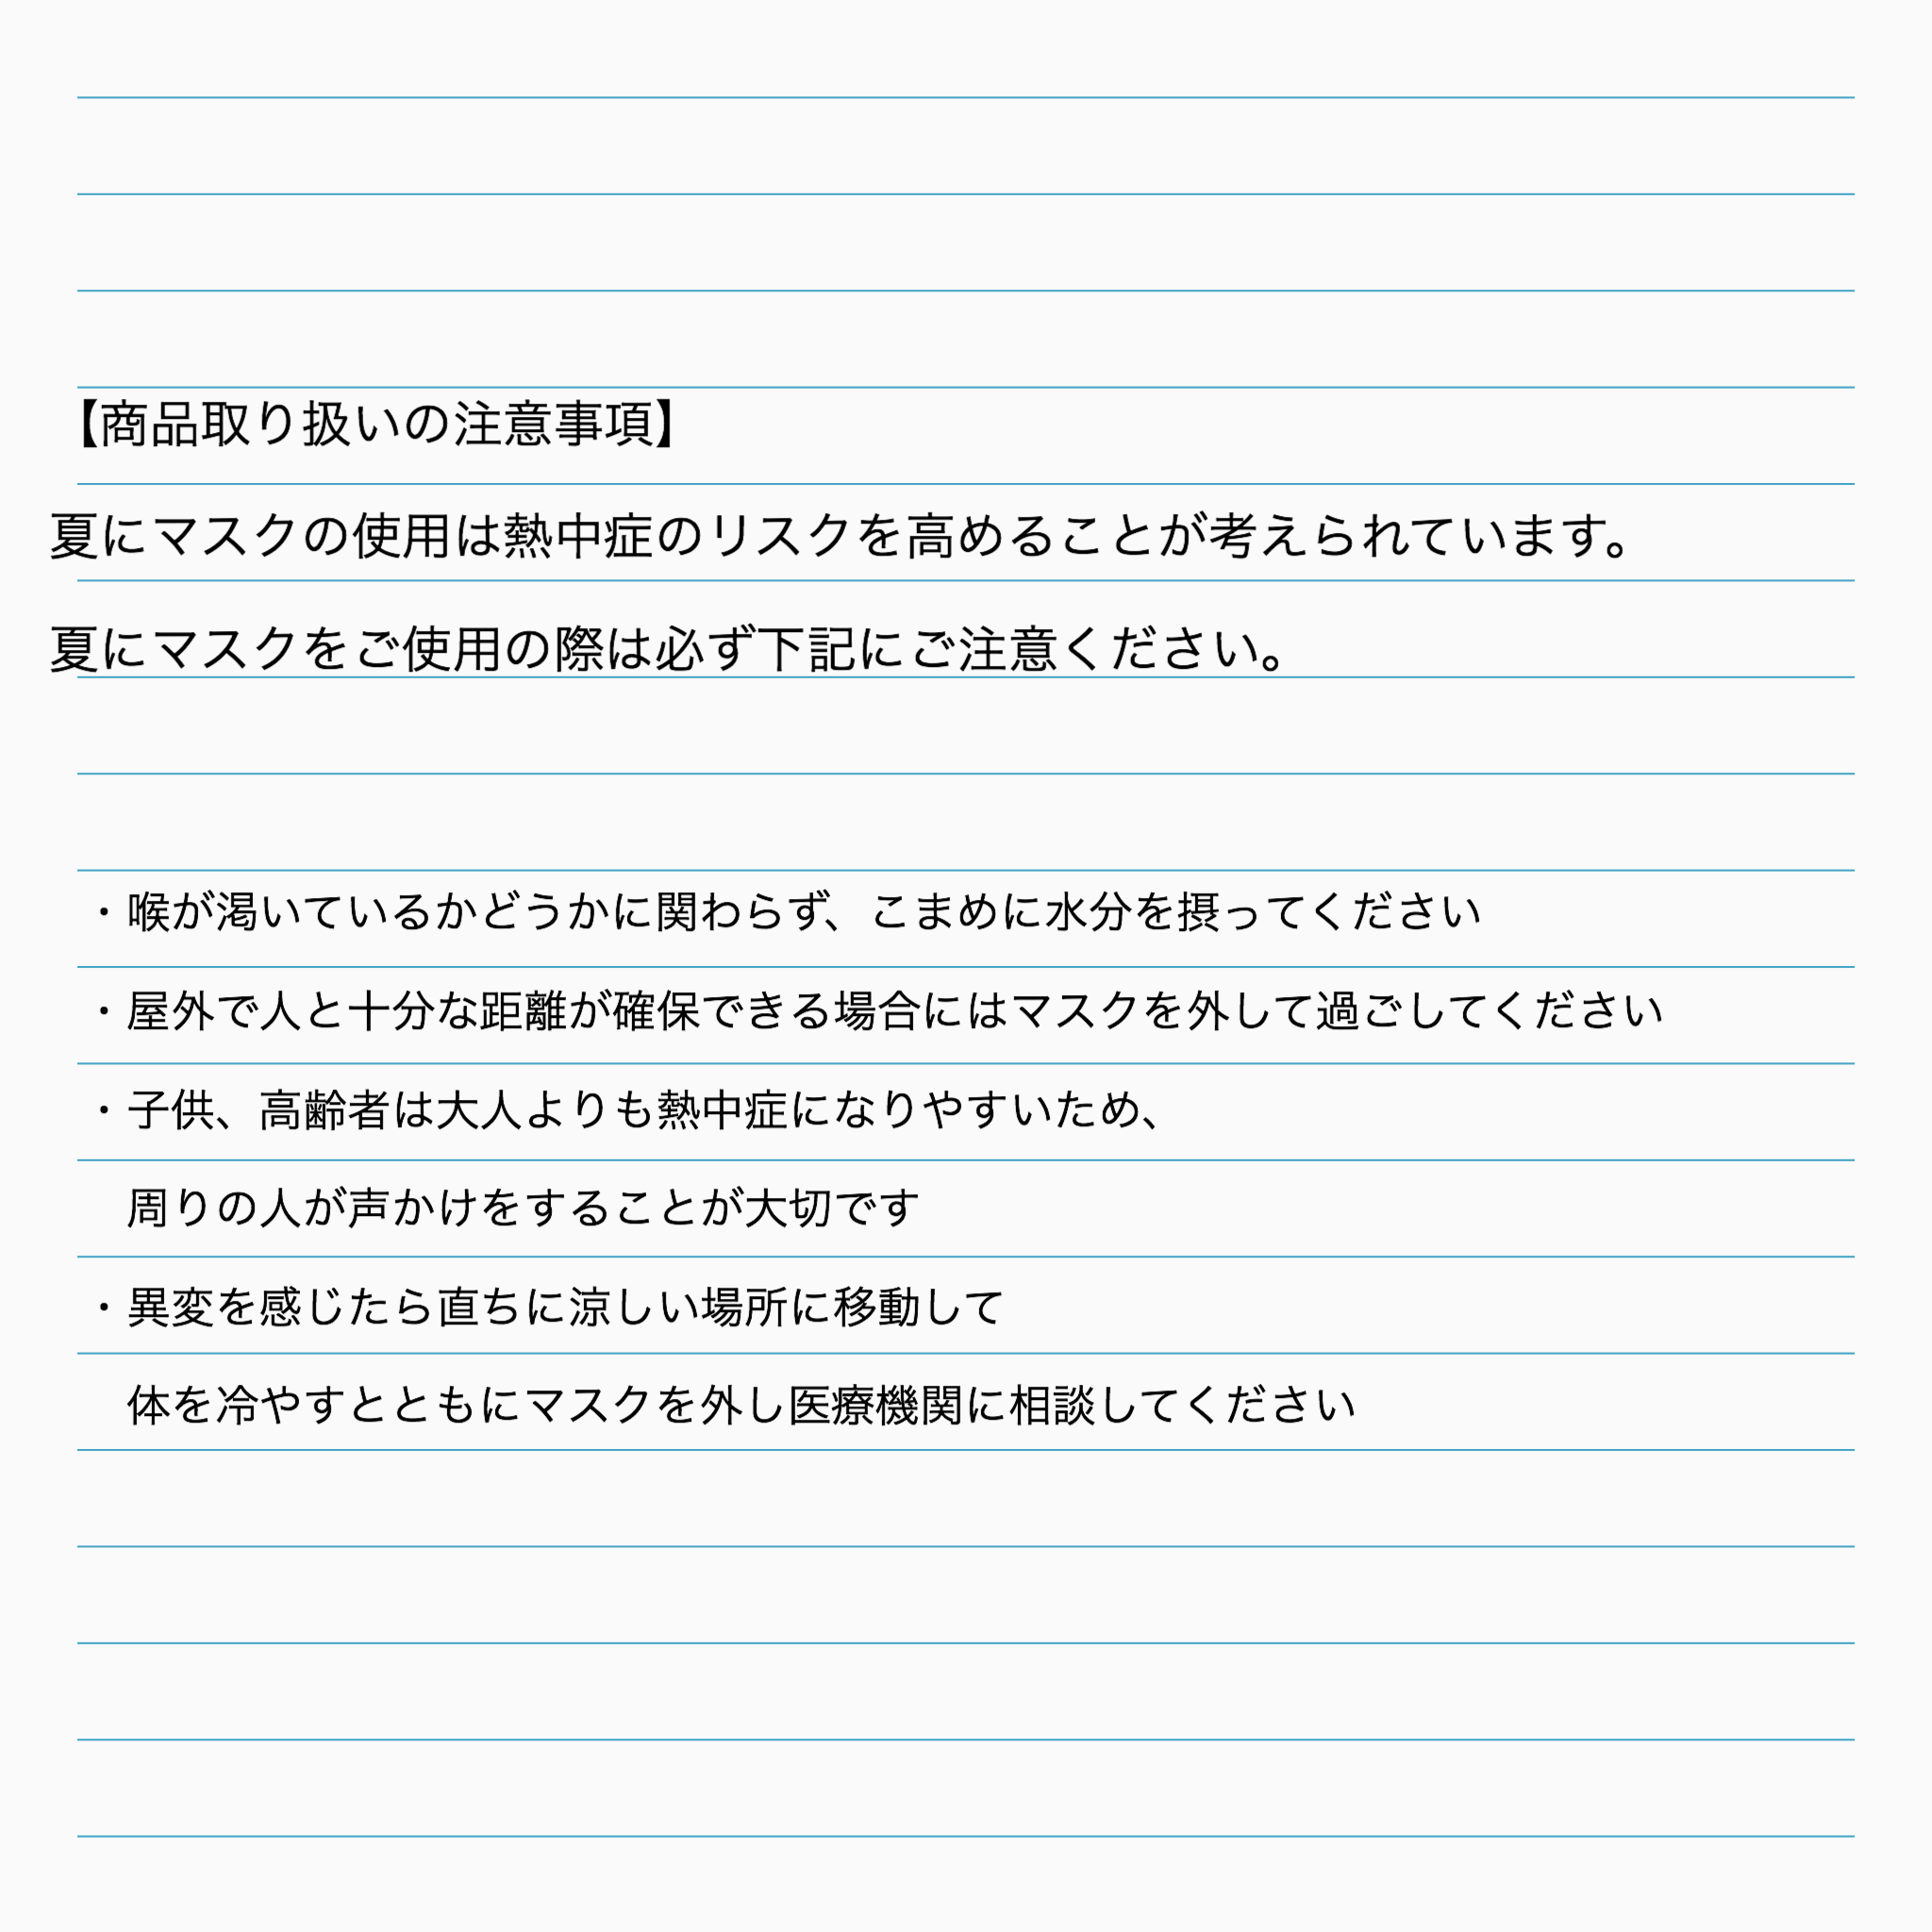 【商品取り扱いの注意事項】
夏にマスクの使用は熱中症のリスクを高めることが考えられています。
夏にマスクをご使用の際は必ず下記にご注意ください。
・喉が渇いているかどうかに関わらず、こまめに水分を摂ってください
・屋外で人と十分な距離が確保できる場合にはマスクを外して過ごしてください
・子供、高齢者は大人よりも熱中症になりやすいため、
周りの人が声かけをすることが大切です
・異変を感じたら直ちに涼しい場所に移動して
体を冷やすとともにマスクを外し医療機関に相談してください